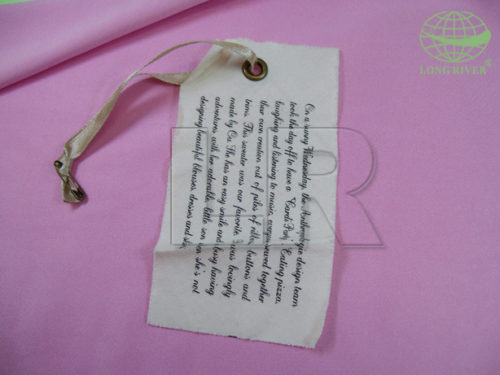 LONG RIVER®
LR
On a sunny Wednesday, the Anthropologie design team
took the day off to have a "Cardi Party". Eating pizza,
laughing and listening to music, everyone sewed together
their own creation out of piles of ribbon, buttons and
trims. This sweater was our favorite. It was lovingly
made by Oa. She has an easy smile and busy having
adventures with her adorable little son when she's not
designing beautiful blouses, dresses and